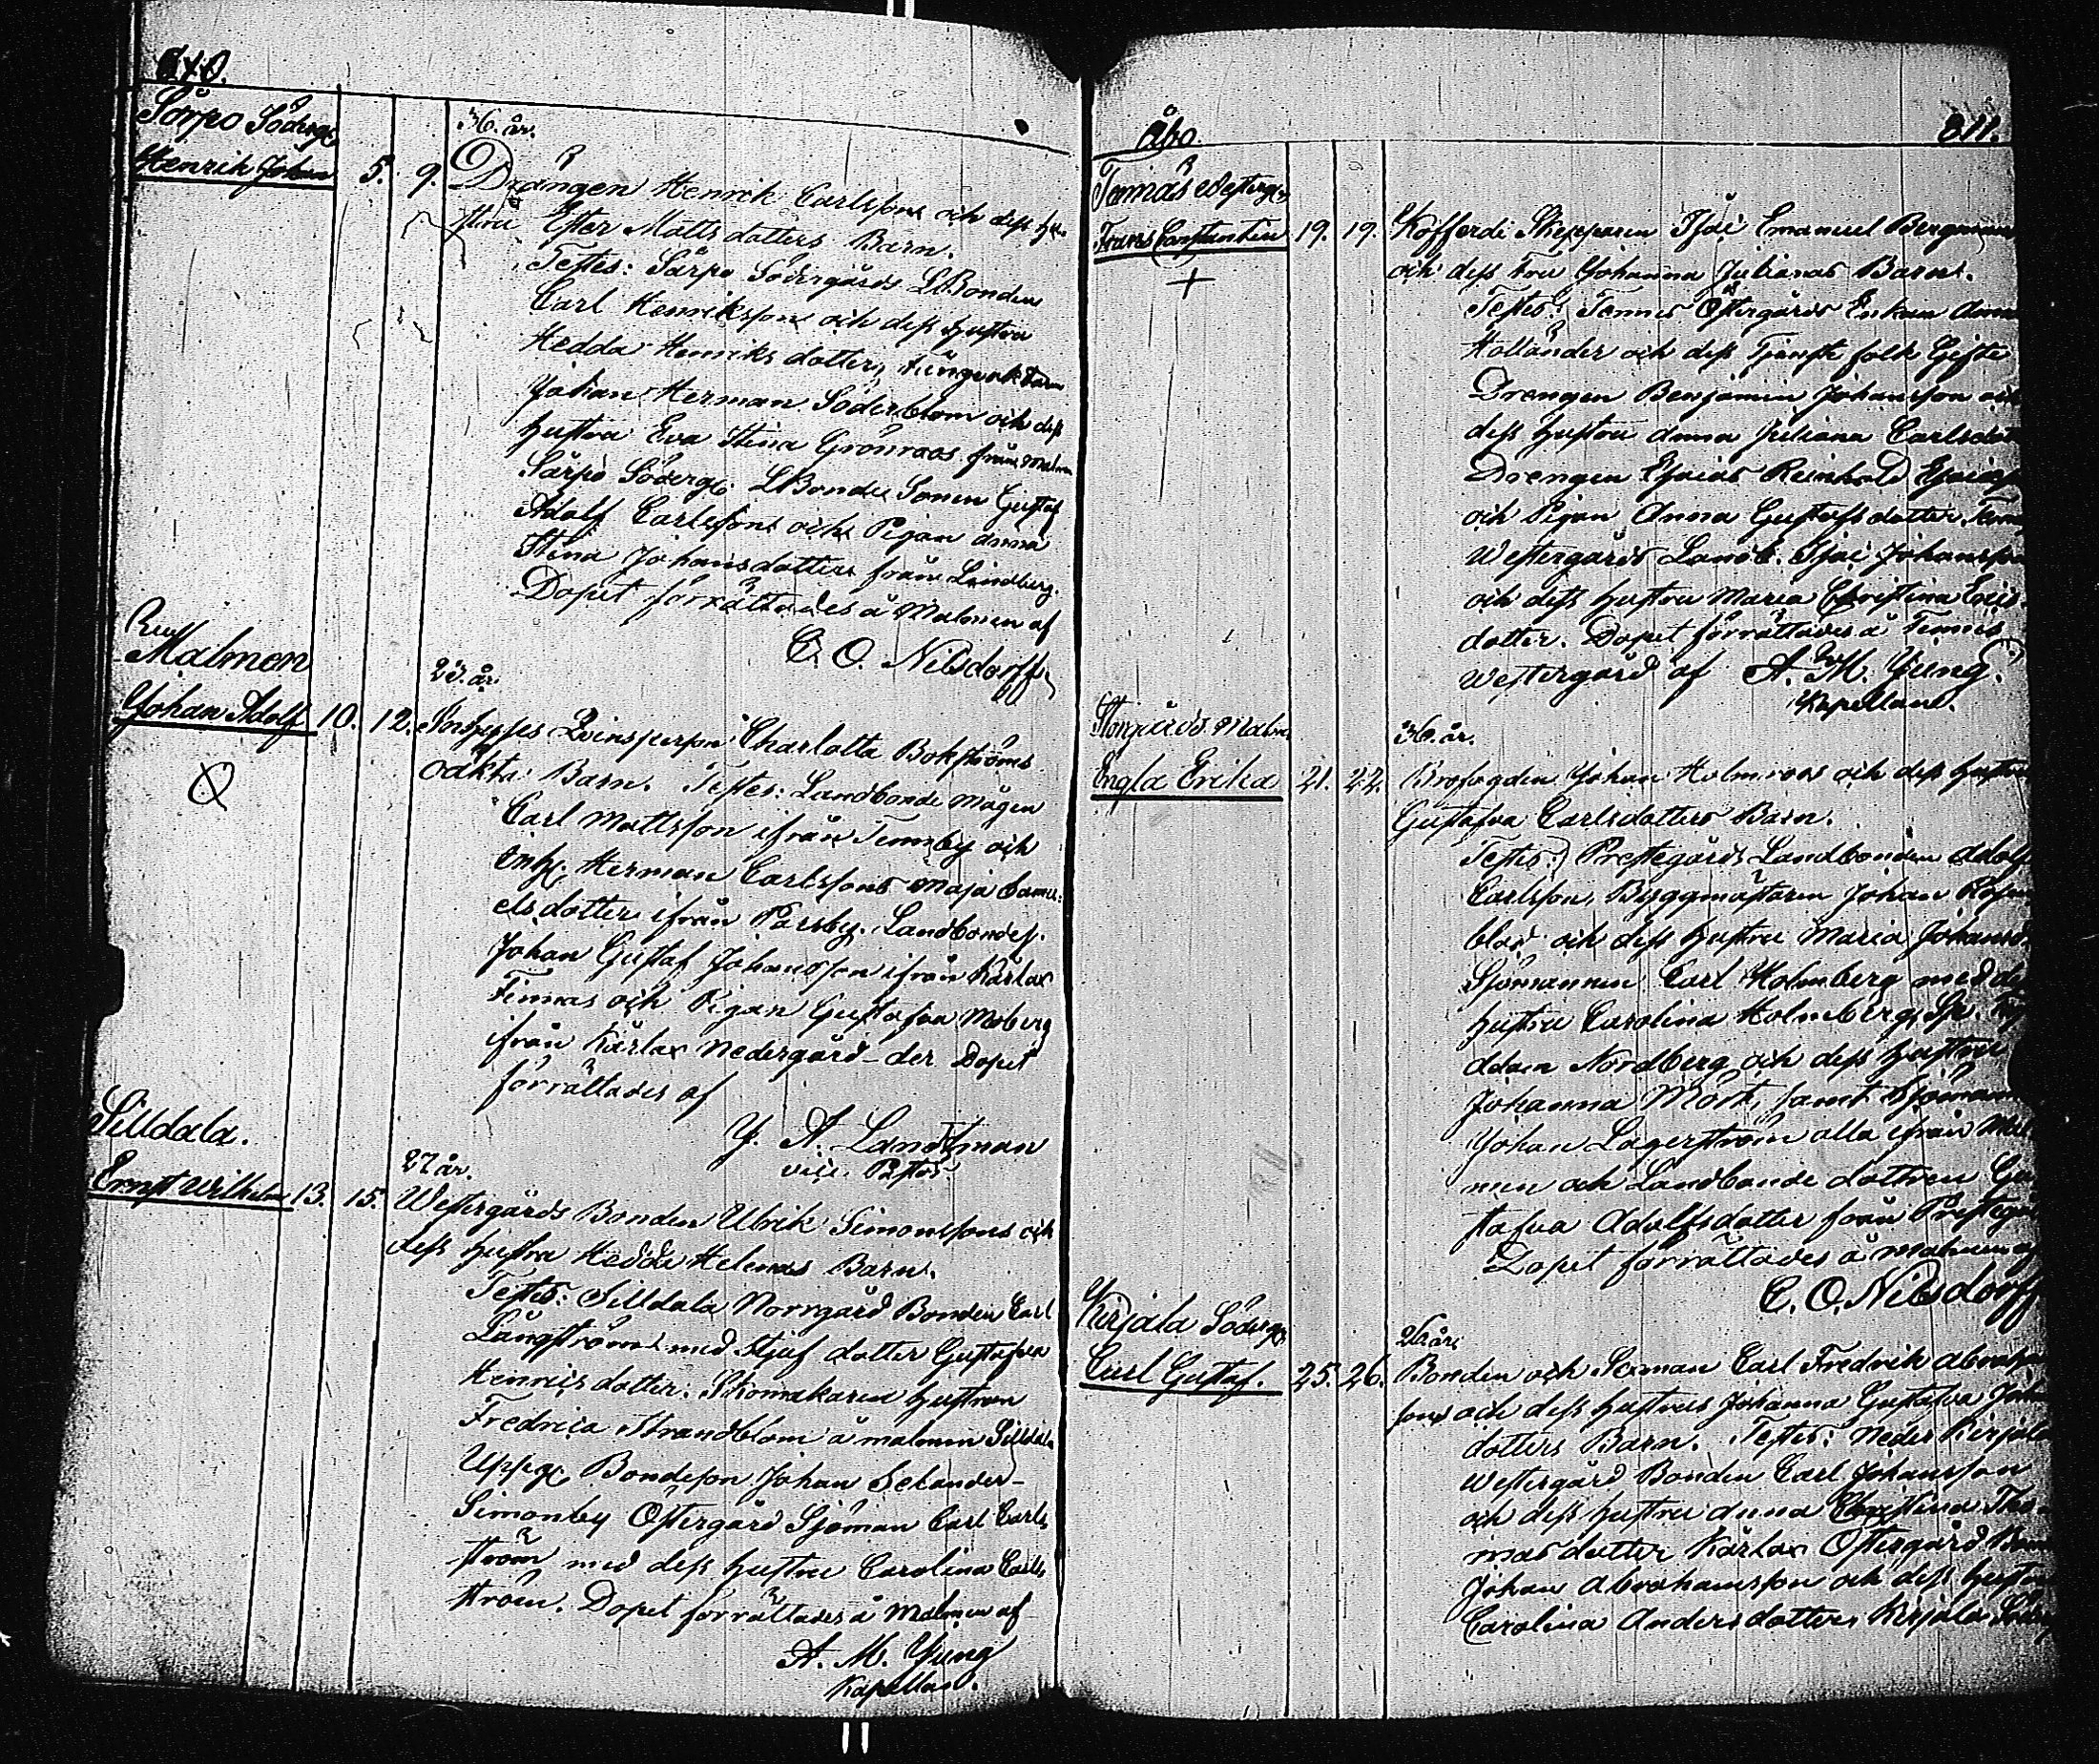 810.
Särpo Söderg:
Henrik Johan 5. 9.
36. år.
Drängen Henrik Carlssons och dess hu-
stru Ester Mattsdotters Barn.
Testes: Särpo Södergårds LBonden
Carl Henriksson och dess hustru
Hedda Henriksdotter,
Johan Herman Söderblom och dess
hustru Eva Stina Grönroos från Malm
Särpo Söderg: LBonde Sonen Gustaf
Adolf Carlsson och Pigan Anna
Stina Johansdotter från Lindberg.
Dopet förrättades å Malmen af
C. O. Nilsdorff
Malmen
23. år.
Johan Adolf 10. 12. Inhyses Qvinsperson Charlotta Bokströms
oäkta Barn. Testes: Landbonde mågen
Carl Mattsson ifrån Tennby och
Inh: Herman Carlssons Maja Samu-
elsdotter ifrån Parsby. Landbondes.
Johan Gustaf Johansson ifrån Kärlax
Finnas och Pigan Gustafva Moberg
ifrån Kärlax Nedergård – der Dopet
förrättades af
J. A. Landtman
vice Pastor.
Silldala.
27 år.
Ernst Wilhelm 13. 15. Westergårds Bonden Ulrik Simonssons och
dess hustru Hedda Helenas Barn.
Testes: Silldala Norrgård Bonden Carl
Långström med Stjuf dotter Gustafva
Henricsdotter. Skomakaren hustrun
Fredrica Strandblom å malmen Silldala
Uppg: Bondeson Johan Selander –
Simonby Östergård Sjöman Carl Carls
ström med dess hustru Carolina Carls
ström. Dopet förrättades å Malmen af
A. M. Ljung
Kapellan.
Åbo. 811.
Westerg:
Frans Constantin 19. 19. Kofferdi Skepparen Isai Emanuel Bergman
och dess Fru Johanna Julianas Barn.
+
Testes: Östergårds Enkan Anna
Holländer och dess Tjenste folk Gifte
Drengen Benjamin Johansson och
dess hustru Anna Juliana Carlsdot
Drengen Esaias Reinhold
och Pigan Anna Gustafsdotter
Westergårds Landb. Isai Johansson
och dess hustru Maria Christina Erics-
dotter. Dopet förrättades å
Westergård af A. M. Ljung.
Kapellan.
Storgårds Malm
36. år.
Engla Erika 21. 22. Brofogden Johan Holmroos och dess hustru
Gustafva Carlsdotters Barn.
Testes: Prestegårds Landbonden Adolf
Carlsson, Byggmästaren Johan Rosen
blad och dess hustru Maria Johansd
Sjömannen Carl Holmberg med
hustru Carolina Holmberg,
Adam Nordberg och dess hustru
Johanna Mört, samt Sjöman
Johan Lagerström alla ifrån Mal
men och Landbonde dottren Gu
stafva Adolfsdotter från Prestegår
Dopet förrättades å Malmen af
C. O. Nilsdorff
Kirjala Söderg:
26 år.
Carl Gustaf. 25. 26. Bonden och Seman Carl Fredrik Abraham
sons och dess hustrus Johanna Gustafva Johans
dotters Barn. Testes: Neder Kirjala
Westergård Bonden Carl Johansson
och dess hustru Anna Christina Tho-
mas dotter Kärlax Östergård Bond
Johan Abrahamsson och dess hustru
Carolina Andersdotter, Kirjala Söderg